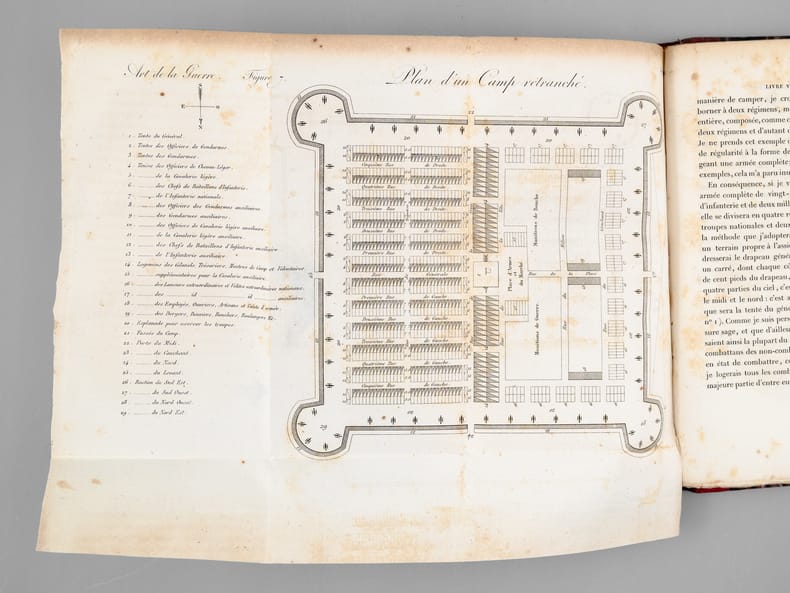 Art de la Guerre. Figure 7.
Plan d'un Camp retranché.
S
E
O
N
1 Tente du Général.
2 Tentes des Officiers de Gendarmes
3 Tentes des Gendarmes.
4 Tentes des Officiers de Chevau-Léger.
5 de la Cavalerie légère.
6 des Chefs de Bataillons d'Infanterie.
7 de l'Infanterie nationale.
8 des Officiers des Gendarmes auxiliaires.
9 des Gendarmes auxiliaires.
10 des Officiers de Cavalerie légère auxiliaire.
11 de la Cavalerie légère auxiliaire.
12 des Chefs de Bataillons d'Infanterie auxiliaire
13 de l'Infanterie auxiliaire.
14 Logemens des Colonels, Trésoriers, Mestres de Camp et Volontaires
15 supplémentaires pour la Cavalerie auxiliaire.
16 des Lanciers extraordinaires et Vélites extraordinaires nationaux.
17 des id id auxiliaires.
18 des Employés, Ouvriers, Artisans et Valets d'armée.
19 des Bergers, Bouviers, Bouchers, Boulangers, Etc.
20 Esplanade pour exercer les troupes.
21 Fossés du Camp.
22 Porte du Midi.
23 du Couchant.
24 du Nord.
25 du Levant.
26 Bastion du Sud Est.
27 du Sud Ouest.
28 du Nord Ouest.
29 du Nord Est.
22
21
26
20
27
Cinquième Rue de Droite
Quatrième Rue de Droite
Troisième Rue de Droite
Deuxième Rue de Droite
Première Rue de Droite
Rue Générale
Première Rue de Gauche
Deuxième Rue de Gauche
Troisième Rue de Gauche
Quatrième Rue de Gauche
Cinquième Rue de Gauche
Place d'Armes et du Marché
Munitions de Bouche
Munitions de Guerre
Rue de la Place
20
29
24
28
LIVRE V
manière de camper, je cro
borner à deux régimens, m
entière, composée, comme c
deux régimens et d'autant d
Je ne prends cet exemple c
de régularité à la forme de
geant une armée complète:
exemples, cela m'a paru inu
En conséquence, si je v
armée complète de vingt-
d'infanterie et de deux mil
elle se divisera en quatre r
troupes nationales et deux
la méthode que j'adopterai
un terrain propre à l'assie
dresserai le drapeau géné
un carré, dont chaque cô
de cent pieds du drapeau,
quatre parties du ciel, c'es
le midi et le nord : c'est a
que sera la tente du géne
n° 1). Comme je suis pers
sure sage, et que d'ailleur
saient ainsi la plupart du
combattans des non-comb
en état de combattre, co
je logerais tous les comb
majeure partie d'entre eu